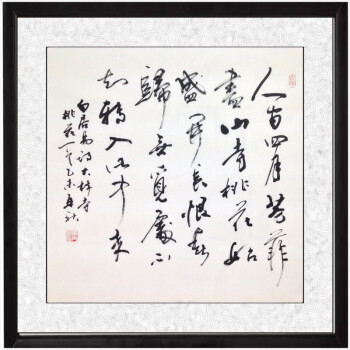 人间四月芳菲
盡山寺桃花始
盛开长恨春
歸无覓處不
知轉入此中来
白居易诗大林寺
桃花一首乙未